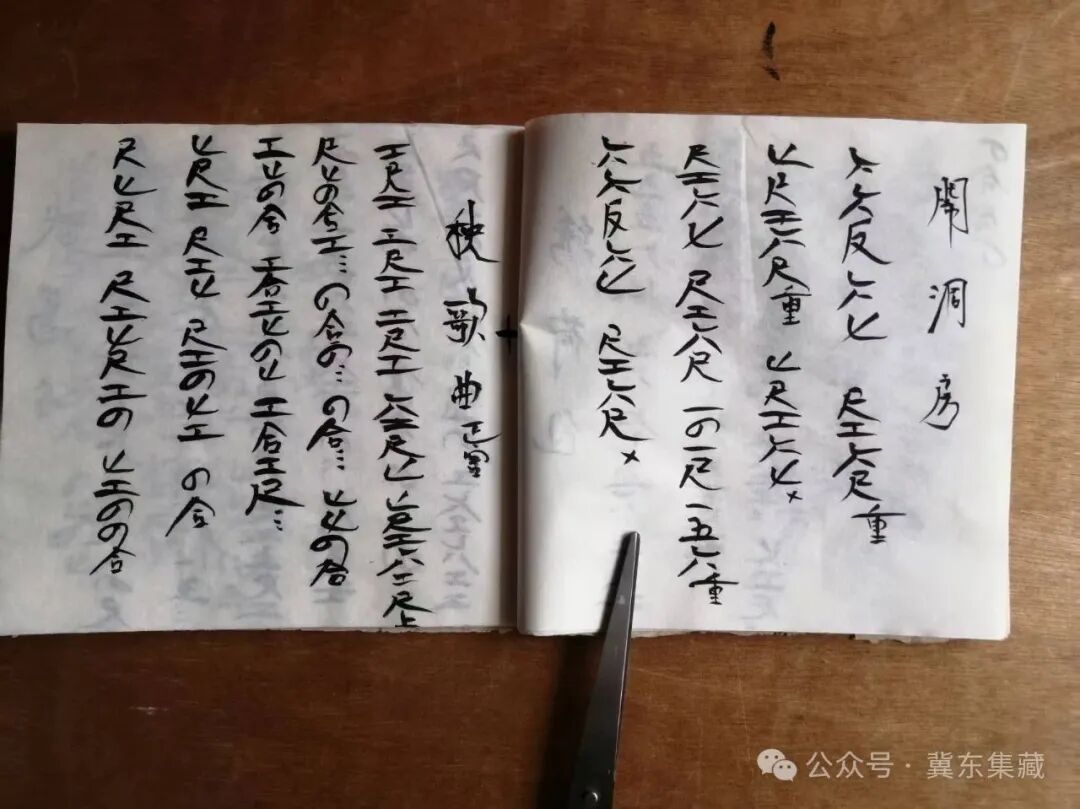 鬧洞房
六六反六上 尺工六尺重
上尺工六尺重 上尺工六上×
尺工六上 尺工六尺 一の一尺 一五六重
六六反六上 尺工六尺×
秧歌曲正
工尺工 工尺工 工尺工 六工尺上 上尺工六工尺上
尺上の合工… の合の… の合… 上上の合
工上の合 工合工上の上 工合工尺…
上尺工 尺工上 尺工の上工 の合
尺上尺工 尺工上尺工の 上工のの合
公众号·冀东集藏